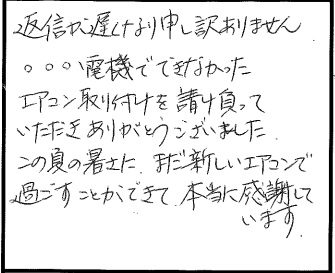 返信が遅くなり申し訳ありません
○○○電機でできなかった
エアコン取り付けを請け負って
いただきありがとうございました
この夏の暑さに、まだ新しいエアコンで
過ごすことができて、本当に感謝して
います。